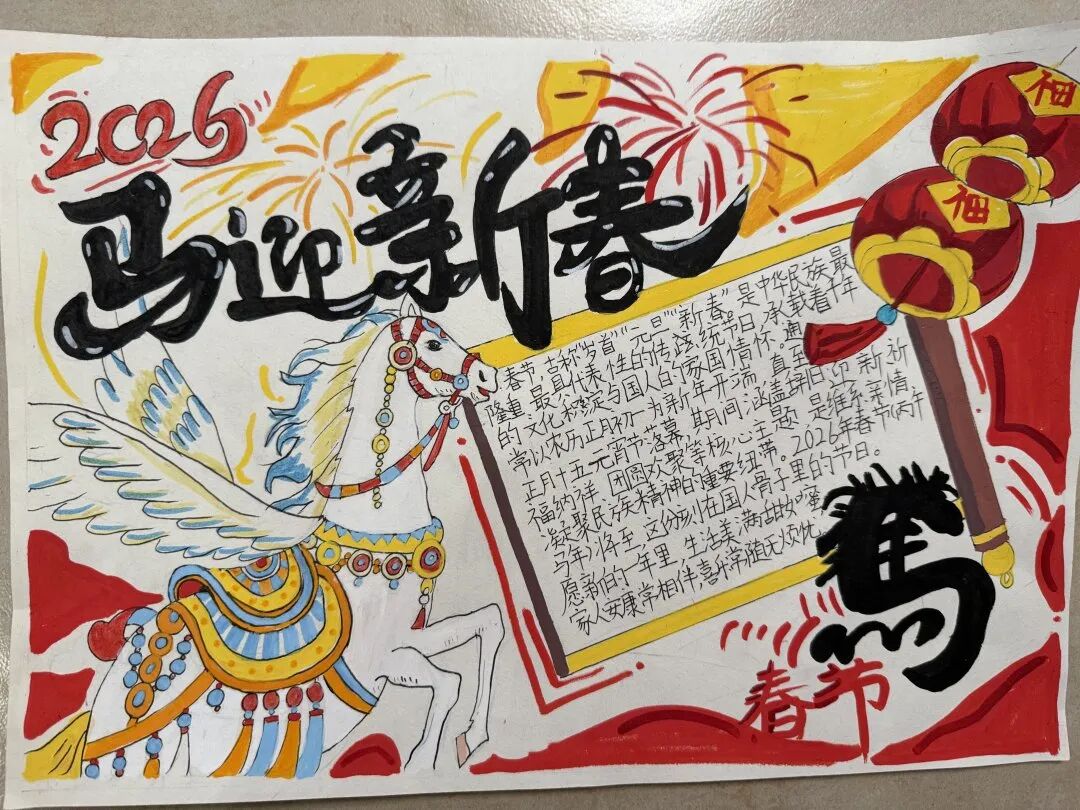 2026
马迎新春
福
福
春节,古称"岁首""元旦""新春"。是中华民族最
隆重、最具代表性的传统节日,承载着千年
的文化积淀与国人的家国情怀。通
常以农历正月初一为新年开端,直至
正月十五元宵节落幕,期间涵盖辞旧迎新、祈
福纳祥、团圆欢聚等核心主题,是维系亲情、
凝聚民族精神的重要纽带。2026年春节(丙午
马年)将至,这份刻在国人骨子里的节日。
愿新的一年里,生活美满甜如蜜
家人安康常相伴喜乐常随无烦忧
馬
春节